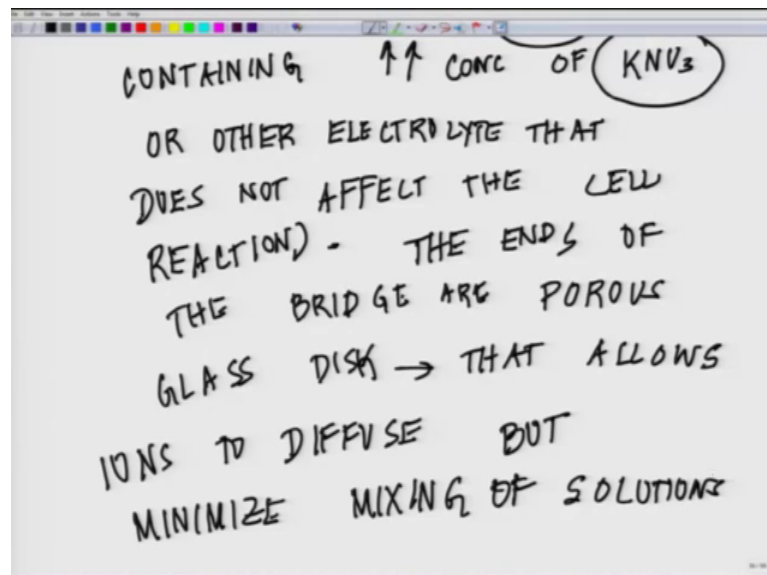 CONTAINING ↑↑ CONC OF KNO3
OR OTHER ELECTROLYTE THAT
DOES NOT AFFECT THE CELL
REACTION). THE ENDS OF
THE BRIDGE ARE POROUS
GLASS DISK → THAT ALLOWS
IONS TO DIFFUSE BUT
MINIMIZE MIXING OF SOLUTIONS